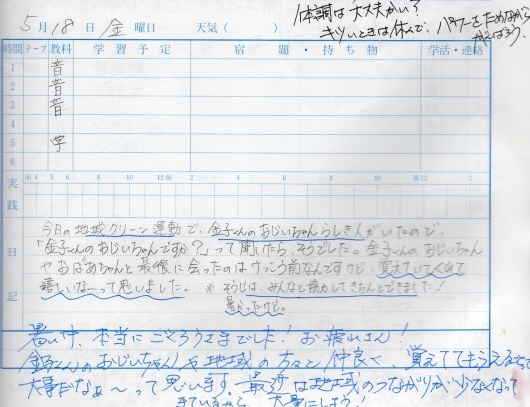 体調は大丈夫かい？
キツいときは休んで、パワーをためながら
がんばろう。
5月18日(金)曜日 天気( )
時間 テープ 教科 学習予定 宿題・持ち物 学活・連絡
1 音
2 音
3 音
4
5 学
6
実践
前4 5 6 8 10 12 前2 4 6 8 10 12
日記
今日の地域クリーン運動で、金子くんのおじいちゃんらしき人がいたので、
「金子くんのおじいちゃんですか？」って聞いたら、そうでした。金子くんのおじいちゃん
やおばあちゃんと最後に会ったのはけっこう前なんですけど、覚えていてくれて
嬉しいな〜って思いました。 ※そうじは、みんなと協力してきちんとできました！
暑かったけど。
暑い中、本当にごくろうさまでした！お疲れさん！
金子くんのおじいちゃんや地域の方々と仲良く、覚えててもらえるって
大事だなぁ〜って思います。最近は地域のつながりが少なくなって
きているから、大事にしよう！